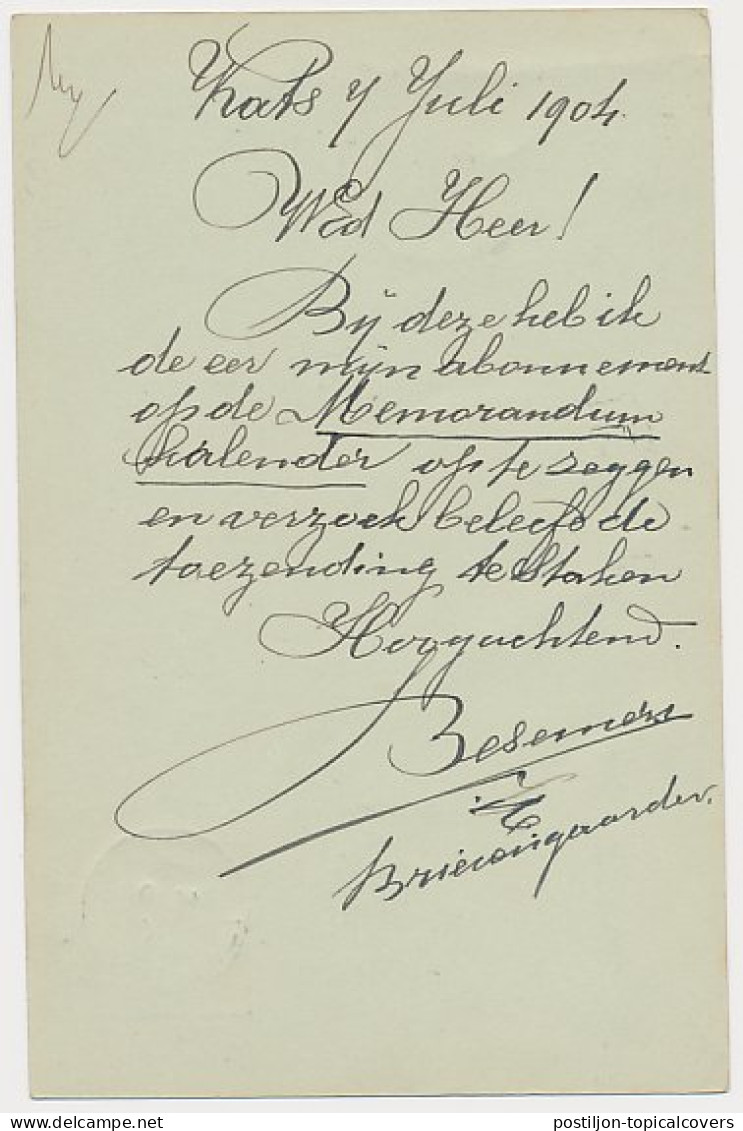 Kats 7 Juli 1904.
WEd Heer!
Bij deze heb ik
de eer mijn abonnement
op de Memorandum
kalender op te zeggen
en verzoek beleefd de
toezending te staken
Hoogachtend.
Besemer
Brievengaarder.
postiljon-topicalcovers